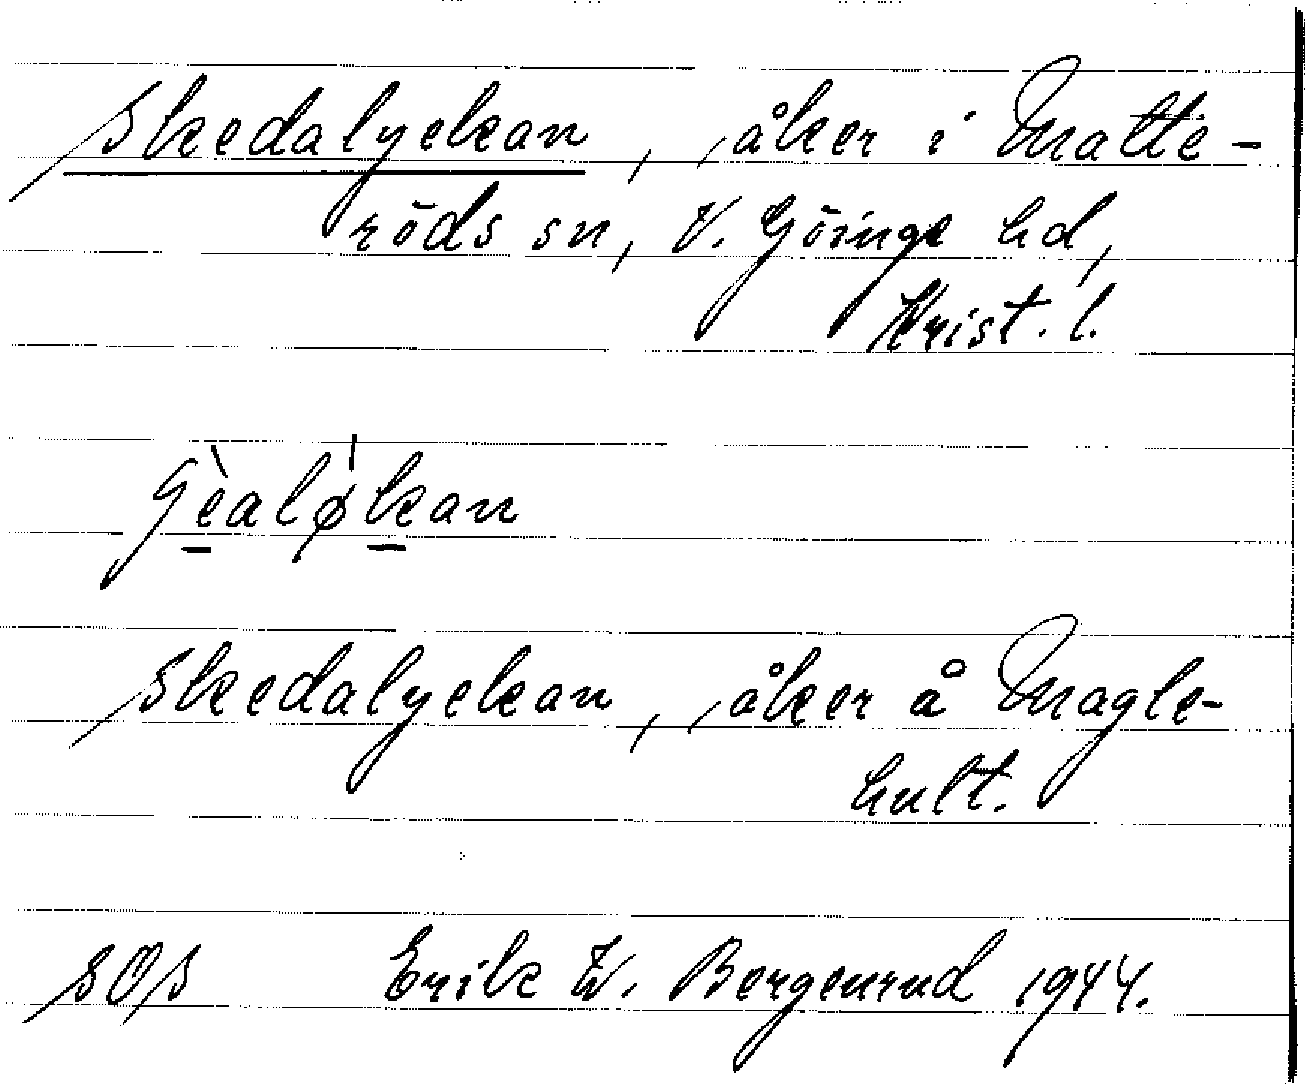 Skedalyckan, åker i Matte-
röds sn, V. Göinge hd,
Krist. l.
gèaløkan
Skedalyckan, åker å Magle-
hult.
SOS Erik W. Bergenrud 1944.